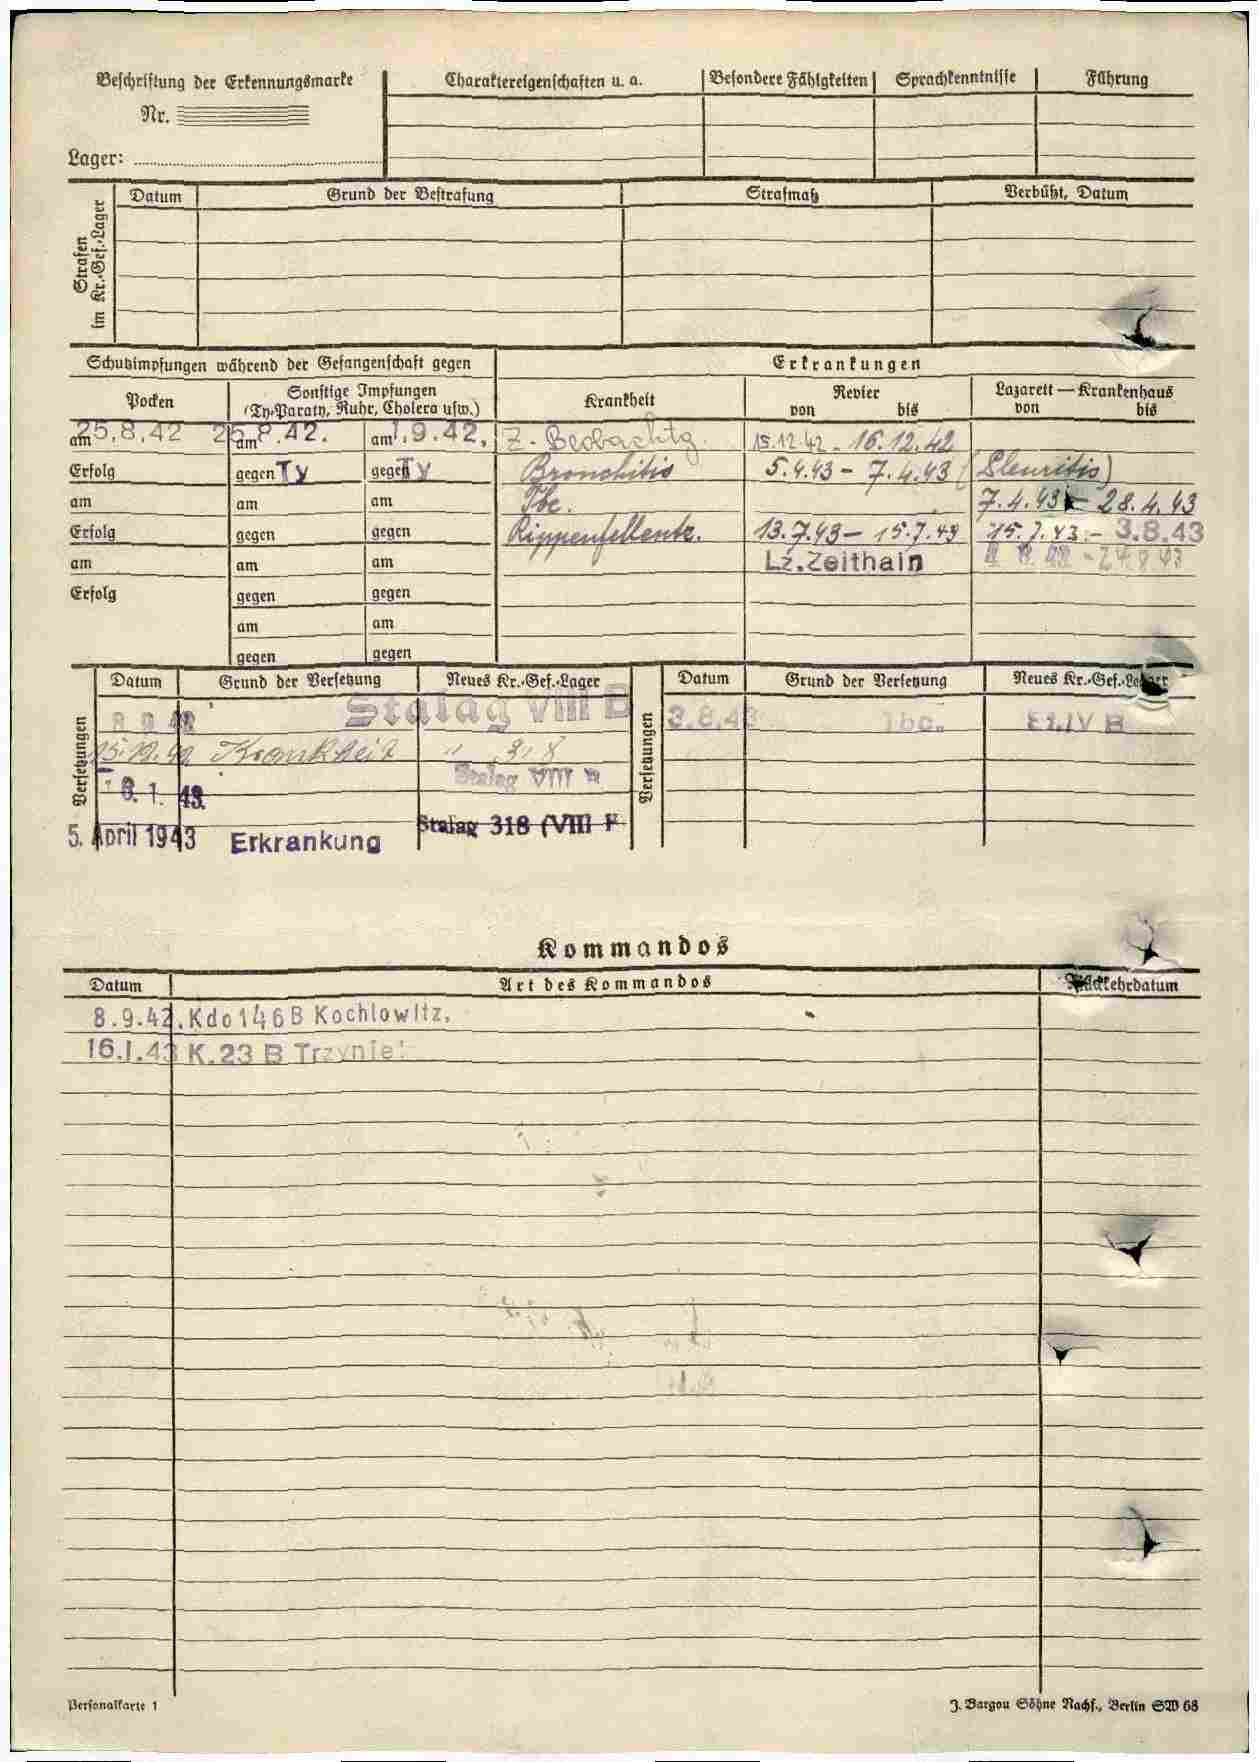 Beschriftung der Erkennungsmarke
Nr.
Lager:
Charaktereigenschaften u. a. Besondere Fähigkeiten Sprachkenntnisse Führung
Strafen im Kr.-Gef.-Lager
Datum Grund der Bestrafung Strafmaß Verbüßt, Datum
Schutzimpfungen während der Gefangenschaft gegen
Erkrankungen
Pocken
Sonstige Impfungen
(Ty-Paraty, Ruhr, Cholera usw.)
Krankheit
Revier
von bis
Lazarett — Krankenhaus
von bis
am 25.8.42 am 25.8.42. am 1.9.42. Z.-Beobachtg. 15.12.42 - 16.12.42
Erfolg gegen Ty gegen Ty Bronchitis 5.4.43 - 7.4.43 (Pleuritis)
am am am Tbc. 7.4.43 - 28.4.43
Erfolg gegen gegen Rippenfellentz. 13.7.43 - 15.7.43 15.7.43 - 3.8.43
am am am Lz. Zeithain
Erfolg gegen gegen
am am
gegen gegen
Versetzungen
Datum Grund der Versetzung Neues Kr.-Gef.-Lager
8 9 42 Stalag VIII B
Krankheit
Stalag VIII
1.43.
5. April 1943 Erkrankung Stalag 318 (VIII F
Versetzungen
Datum Grund der Versetzung Neues Kr.-Gef.-Lager
3.8.43 Tbc. St.IV B
Kommandos
Datum Art des Kommandos Rückkehrdatum
8.9.42. Kdo 146 B Kochlowitz.
16.1.43 K. 23 B Trzynietz
Personalkarte 1
J. Bargou Söhne Nachf., Berlin SW 68